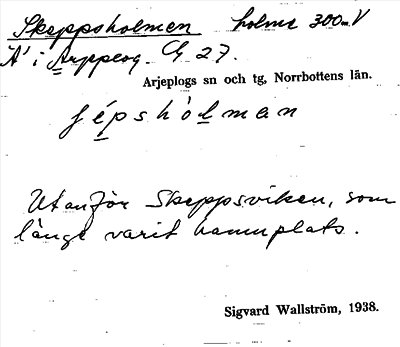 Skeppsholmen holme 300m V
Ä i Arjeplog. Cg 27.
Arjeplogs sn och tg, Norrbottens län.
ʃépshòlman
Utanför Skeppsviken, som
länge varit hamnplats.
Sigvard Wallström, 1938.